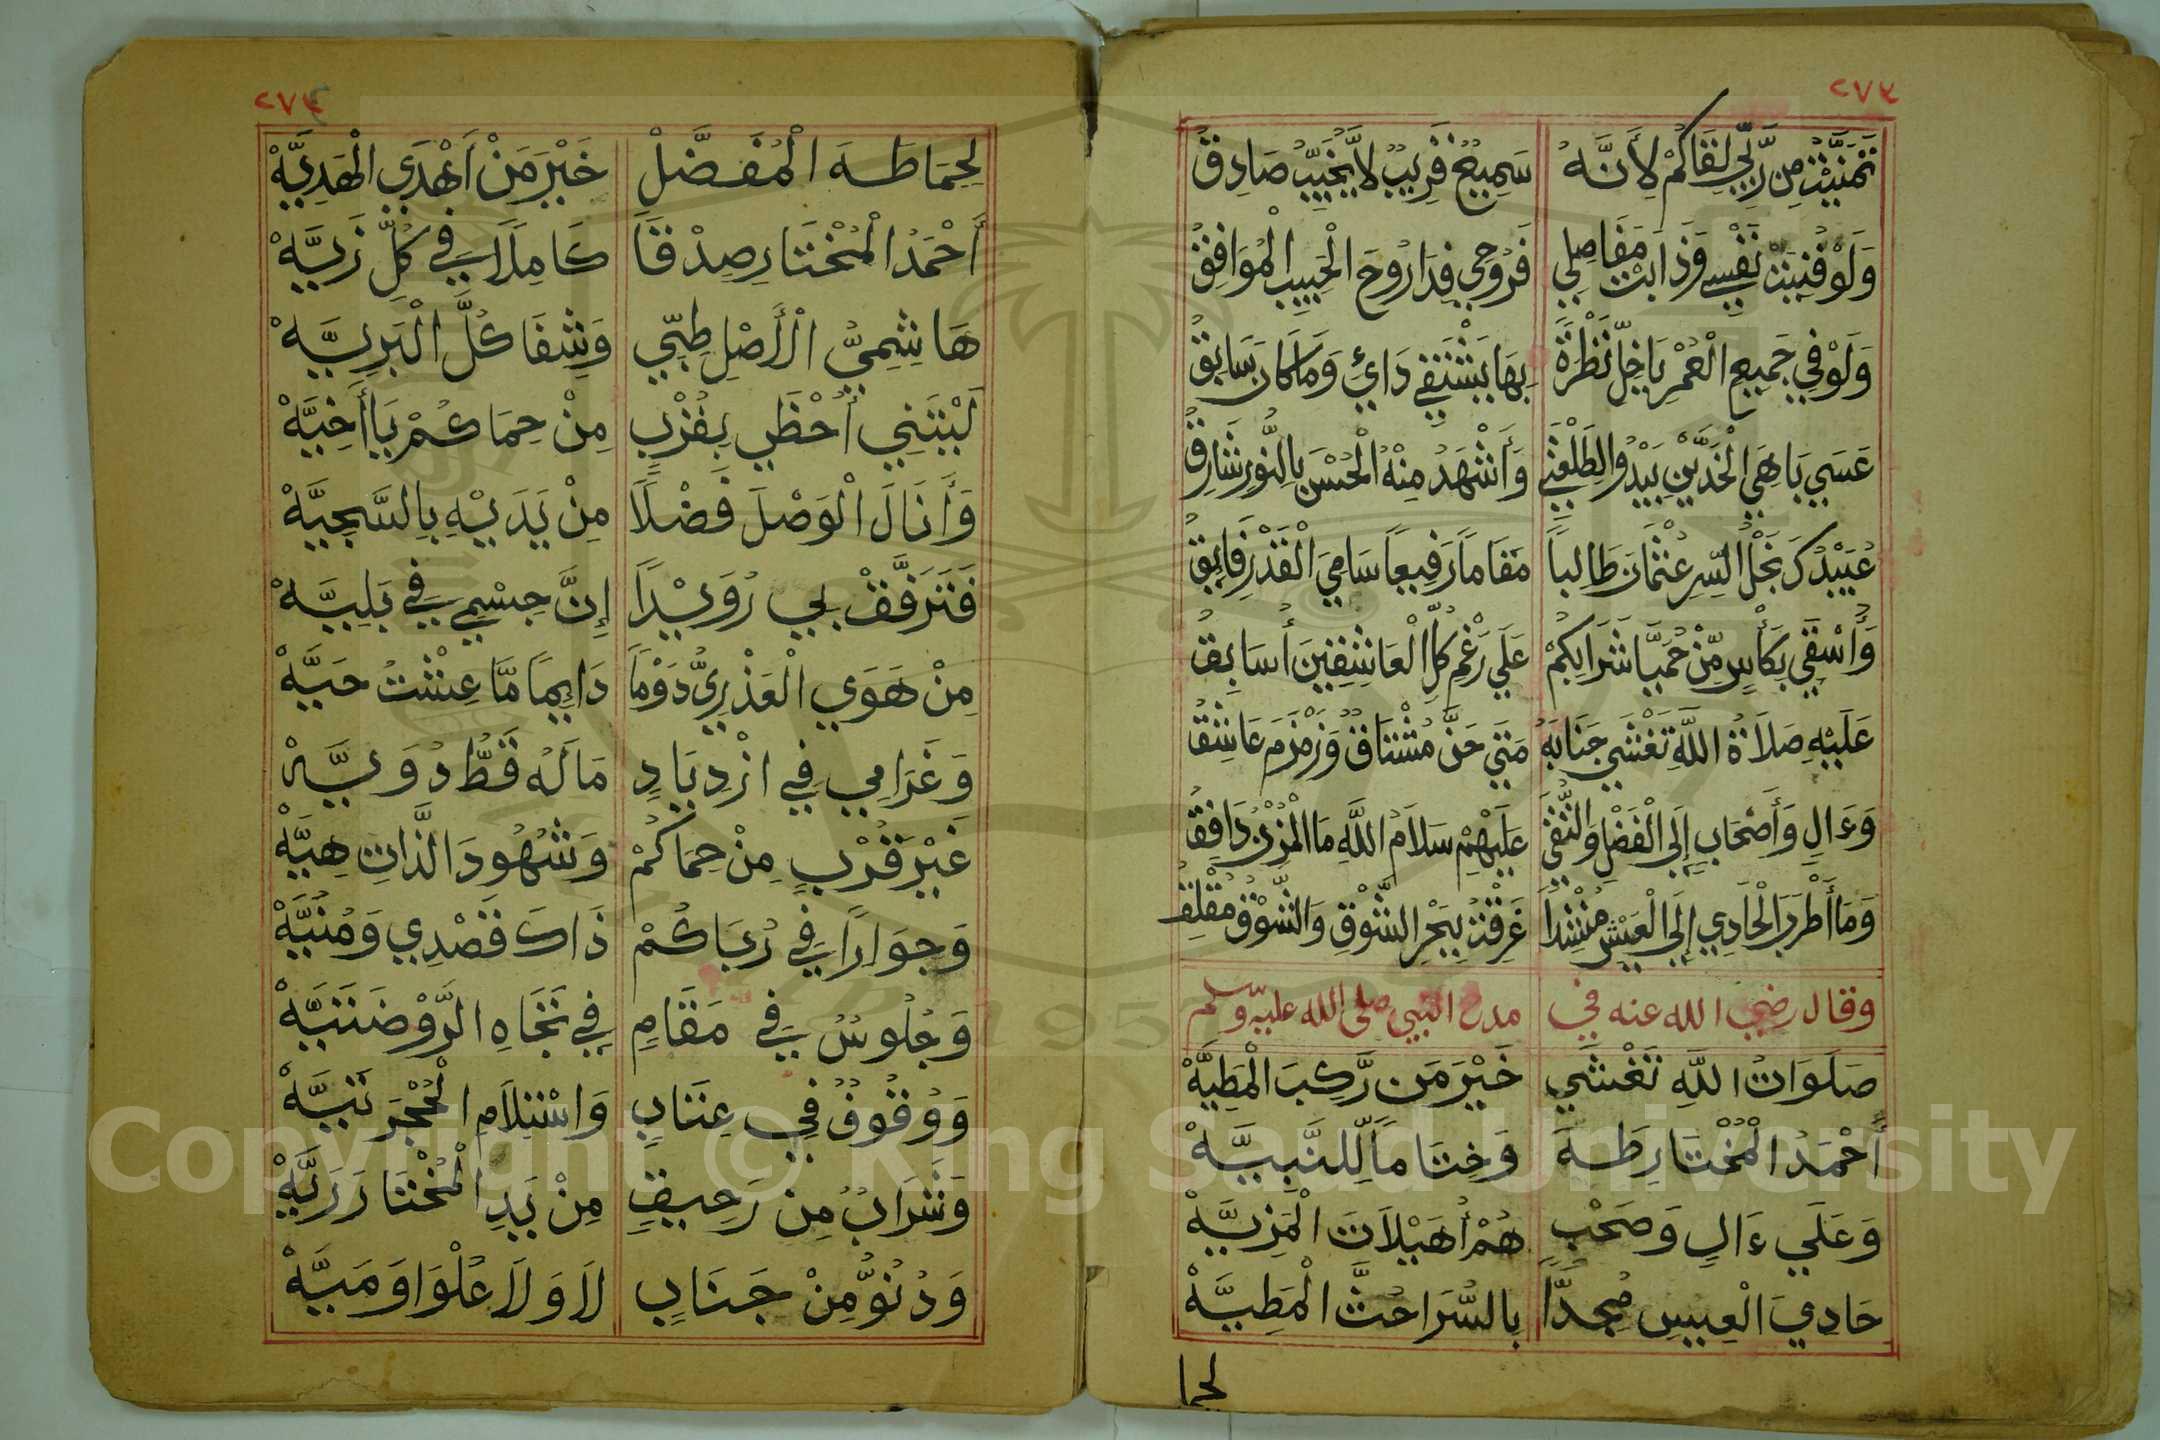 ٢٧٣
تَمَنَّيْتُ مِن رَّبِّي لِقَاكُمْ لِأَنَّهُ سَمِيعٌ قَرِيبٌ لَا يُخَيِّبُ صَادِقُ
وَلَوْ فُنِيَتْ نَفْسِي وَذَابَتْ مَفَاصِلِي فَرُوحِي فِدَا رُوحَ الْحَبِيبِ الْمُوَافِقُ
وَلَوْ فِي جَمِيعِ الْعُمْرِ يَا خِلِّ نَظْرَةً بِهَا يَشْتَفِي دَائِي وَمَا كَانَ سَابِقُ
عَسَى يَا بَهِي الْخَدَّيْنِ يَبْدُو الطَلْعَتِي وَأَشْهَدُ مِنْهُ الْحُسْنَ بِالنُّورِ شَارِقُ
عُبَيْدُكَ نَجْلُ السِّرِ عُثْمَانَ طَالِباً مَقَاماً رَفِيعاً سَامِيَ الْقَدْرِ فَايِقُ
وَأُسْقَى بِكَأْسٍ مِّنْ حُمَيَّا شَرَابِكُمْ عَلَى رَغْمِ كُلِّ الْعَاشِقِينَ أُسَابِقُ
عَلَيْهِ صَلَاةُ اللَّهِ تَغْشَى جَنَابَهُ مَتَى حَنَّ مُشْتَاقٌ وَزَمْزَمَ عَاشِقُ
وَءَالٍ وَأَصْحَابٍ إِلَى الْفَضْلِ وَالتُّقَى عَلَيْهِمْ سَلَامُ اللَّهِ مَا الْمُزْنُ دَافِقُ
وَمَا أَطْرَبَ الْحَادِي إِلَى الْعَيْسِ مُنْشِداً غَرِقْتُ بِبَحْرِ الشَّوْقِ وَالشَّوْقُ مُقْلِقُ
وقال رضي الله عنه في مدح النبي صلى الله عليه وسلم
صَلَوَاتُ اللَّهِ تَغْشَى خَيْرَ مَن رَّكِبَ الْمَطِيَّهْ
أَحْمَدُ الْمُخْتَارِ طَهَ وَخِتَاماً لِّلنَّبِيَّهْ
وَعَلَى ءَالٍ وَصَحْبٍ هُمْ أُهَيْلَاتَ الْمَزِيَّهْ
حَادِيَ الْعِيسِ مُجِدًّا بِالسَّرَا حُثَّ الْمَطِيَّهْ
لحما
٢٧٤
لِحِمَا طَهَ الْمُفَضَّلْ خَيْرَ مَنْ أَهْدَى الْهَدِيَّهْ
أَحْمَدُ الْمُخْتَارِ صِدْقاً كَامِلاً فِي كُلِّ زَيَّهْ
هَاشِمِيُّ الْأَصْلِ طِبِّي وَشِفَا كُلَّ الْبَرِيَّهْ
لَيْتَنِي أُحْظَى بِقُرْبٍ مِنْ حِمَاكُمْ يَا أُخَيَّهْ
وَأَنَالَ الْوَصْلَ فَضْلاً مِنْ يَدَيْهِ بِالسَّجِيَّهْ
فَتَرَفَّقْ بِي رُوَيْدًا إِنَّ جِسْمِي فِي بَلِيَّهْ
مِنْ هَوَى الْعَذْرِيُّ دَوْماً دَايِمًا مَّا عِشْتُ حَيَّهْ
وَغَرَامِي فِي ازْدِيَادٍ مَالَهُ قَطُّ دُوَيَّهْ
غَيْرَ قُرْبٍ مِنْ حِمَاكُمْ وَشُهُودَ الذَّاتِ هِيَّهْ
وَجِوَارًا فِي رُبَاكُمْ ذَاكَ قَصْدِي وَمُنَيَّهْ
وَجُلُوسٌ فِي مَقَامٍ فِي تَجَاهِ الرَّوْضَتَيَّهْ
وَوُقُوفٌ فِي عِتَابٍ وَاسْتِلَامِ الْحُجْرَتَيَّهْ
وَشَرَابٌ مِن رَحِيقٍ مِنْ يَدِ الْمُخْتَارَ رَيَّهْ
وَدُنُوٌّ مِنْ جَنَابٍ لَا وَلَا عُلْوَا وَمَيَّهْ
Copyright © King Saud University
1957